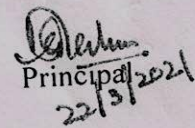 Principal
22/3/2021